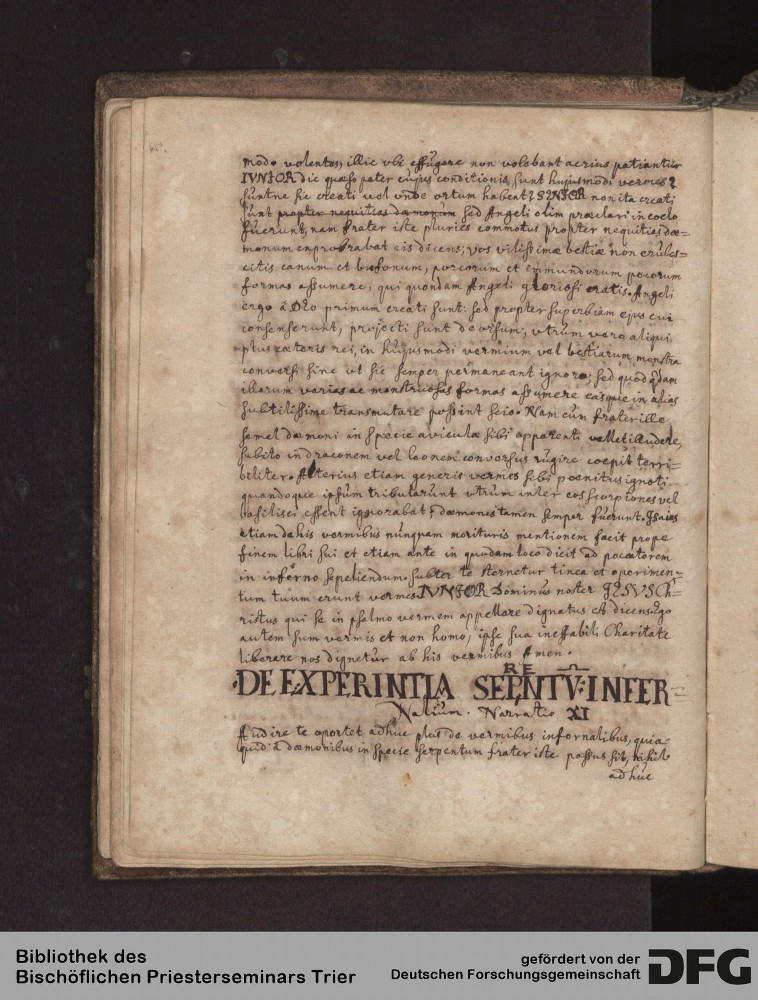 modo volentes, illic vbi effugere non volebant acrius patiantur
IVNIOR dic quæso pater cujus conditionis sunt hujusmodi vermes?
suntne sic creati vel vnde ortum habent? SENIOR non ita creati
sunt propter nequitias dæmonum sed Angeli olim præclari in coelo
fuerunt, nam frater iste pluries commotus propter nequitias dæ=
monum exprobrabat eis dicens; vos vilissimæ bestiæ non erubes=
citis canum et bufonum, porcorum et immundorum pecorum
formas assumere, qui quondam Angeli gloriosi eratis. Angeli
ergo à Deo primum creati sunt: sed propter superbiam ejus cui
consenserunt, projecti sunt deorsum, vtrum vero aliqui
plus cæteris rei, in hujusmodi vermium vel bestiarum monstra
conversi sint vt sic semper permaneant ignoro; sed quod qdam
illorum varias ac monstruosas formas assumere easque in alias
subtilissime transmutare possint scio. Nam cùn frater ille
semel dæmoni in specie aviculæ sibi apparenti vellet illudere,
subito in draconem vel leonem conversus rugire coepit terri=
biliter. Alterius etiam generis vermes sibi poenitus ignoti
quandoque ipsum tribularunt vtrum inter eos scorpiones vel
basilisci essent ignorabat, dæmones tamen semper fuerunt. Isaias
etiam de his vermibus nunquam morituris mentionem facit prope
finem libri sui et etiam ante in quodam loco dicit ad peccatorem
in inferno sepeliendum. subter te sternetur tinea et operimen=
tum tuum erunt vermes. IVNIOR Dominus noster IESVS Ch=
ristus qui se in psalmo vermem appellare dignatus est dicens ego
autem sum vermis et non homo, ipse sua ineffabili Charitate
liberare nos dignetur ab his vermibus Amen.
RE
DE EXPERINTIA SEPNTV: INFER=
Nalium. Narratio XI
Audire te oportet adhuc plus de vermibus infernalibus, quia
quid à dæmonibus in specie serpentum frater iste passus sit, nihil
adhuc
Bibliothek des
Bischöflichen Priesterseminars Trier
gefördert von der
Deutschen Forschungsgemeinschaft
DFG